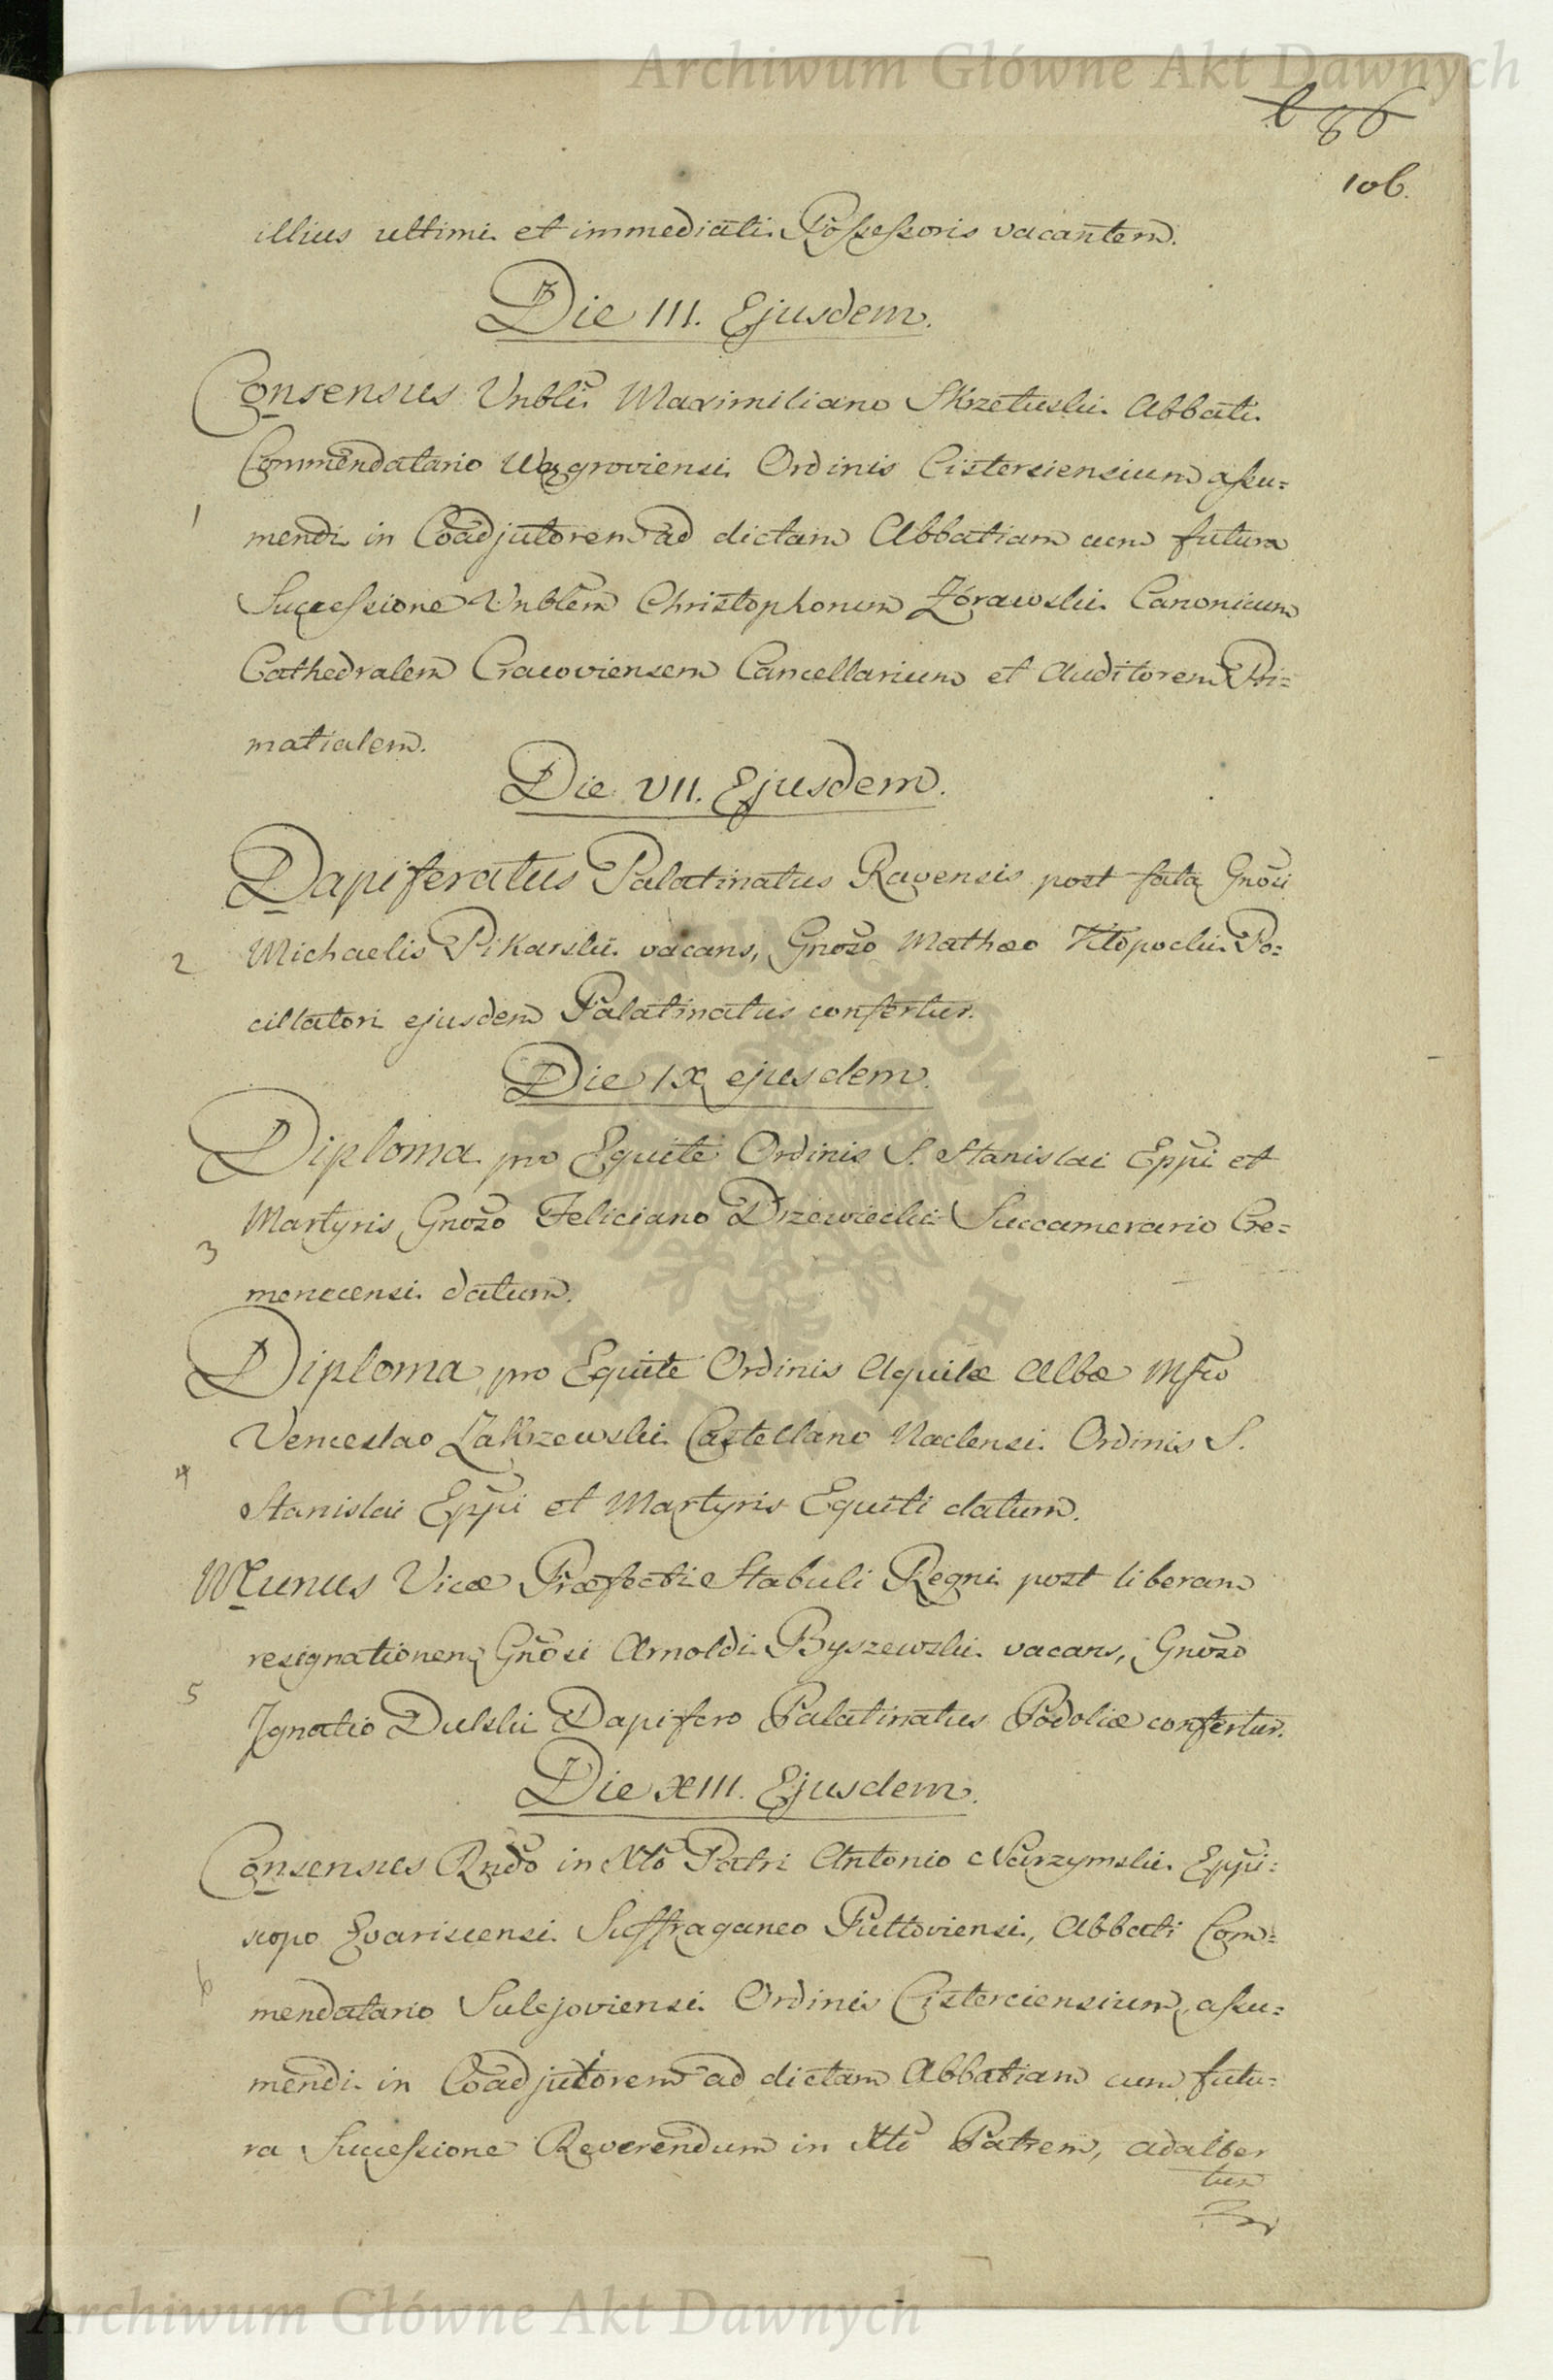 Archiwum Główne Akt Dawnych
86
106.
illius ultimi et immediati Possessoris vacantem.
Die III. Ejusdem.
Consensus Vnbli Maximiliano Skrzetuski Abbati
Commendatario Wągroviensi Ordinis Cisterciensium assu=
1
mendi in Coadjutorem ad dictam Abbatiam cum futura
Successione Vnblem Christophorum Żórawski Canonicum
Cathedralem Cracoviensem Cancellarium et Auditorem Pri=
matialem.
Die VII. Ejusdem.
Dapiferatus Palatinatus Ravensis post fata Gnosi
2 Michaelis Pikarski vacans, Gnoso Mathæo Kłopocki Po=
cillatori ejusdem Palatinatus confertur.
Die IX ejusdem.
Diploma pro Equite Ordinis S. Stanislai Eppi et
Martyris Gnoso Feliciano Drzewiecki Succamerario Cre=
3
menecensi datum.
Diploma pro Equite Ordinis Aquilæ Albæ Mfco
Venceslao Zakrzewski Castellano Naclensi Ordinis S.
4
Stanislai Eppi et Martyris Equiti datum.
Munus Vicæ Præfecti Stabuli Regni post liberam
resignationem Gnosi Arnoldi Byszewski vacans, Gnoso
5
Ignatio Dulski Dapifero Palatinatus Podoliæ confertur.
Die XIII. Ejusdem.
Consensus Rndo in Xto Patri Antonio Narzymski Eppi=
scopo Evariensi Suffraganeo Pultoviensi, Abbati Com=
6
mendatario Sulejoviensi Ordinis Cisterciensium, assu=
mendi in Coadjutorem ad dictam Abbatiam cum futu=
ra Successione Reverendum in Xto Patrem, Adalber
tum
Archiwum Główne Akt Dawnych